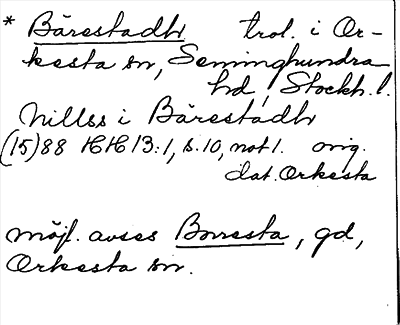 * Bärestadhr trol. i Or-
kesta sn, Seminghundra
hd, Stockh. l.
Nillss i Bärestadhr
(15)88 HH 13:1, s. 10, not 1. orig.
dat. Orkesta
möjl. avses Borresta, gd,
Orkesta sn.